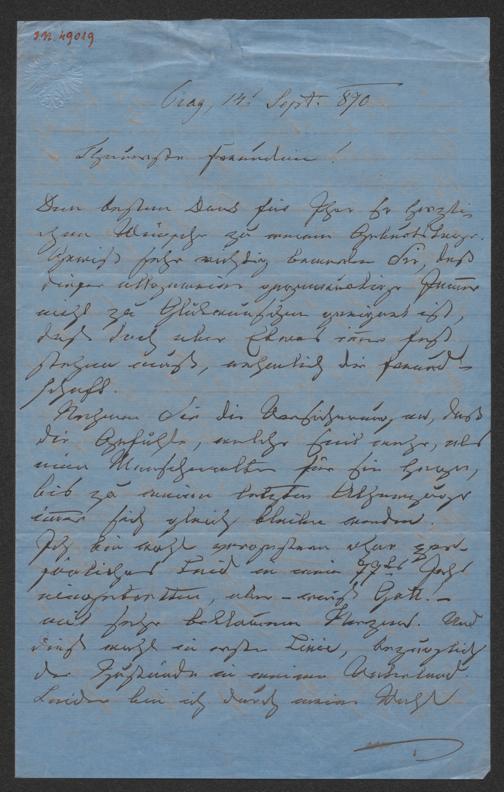 I.N. 49019
Prag, 14t Sept. 870
Theuerste Freundin!
Den besten Dank für Ihre so herzli-
chen Wünsche zu meinem Geburtstage.
Gewiss sehr richtig bemerken Sie, daß
dieser allgemeine Jammer
nicht zu Glückwünschen geeignet ist,
daß doch aber Etwas immer fest
stehen muß, nehmlich die Freund-
schaft.
Nehmen Sie die Versicherung an, daß
die Gefühle, welche seit mehr, als
ein Menschenalter für Sie hege,
bis zu meinem letzten Athemzuge
immer sich gleich bleiben werden.
Ich bin wohl ohne per-
sönliches Leid in mein 77tes Jahr
eingetreten, aber – weiß Gott –
mit sehr beklommenem Herzen. Und
dieß wohl in erster Linie, bezüglich
der Zustände in meinem Vaterland.
Leider bin ich durch meine Wahl